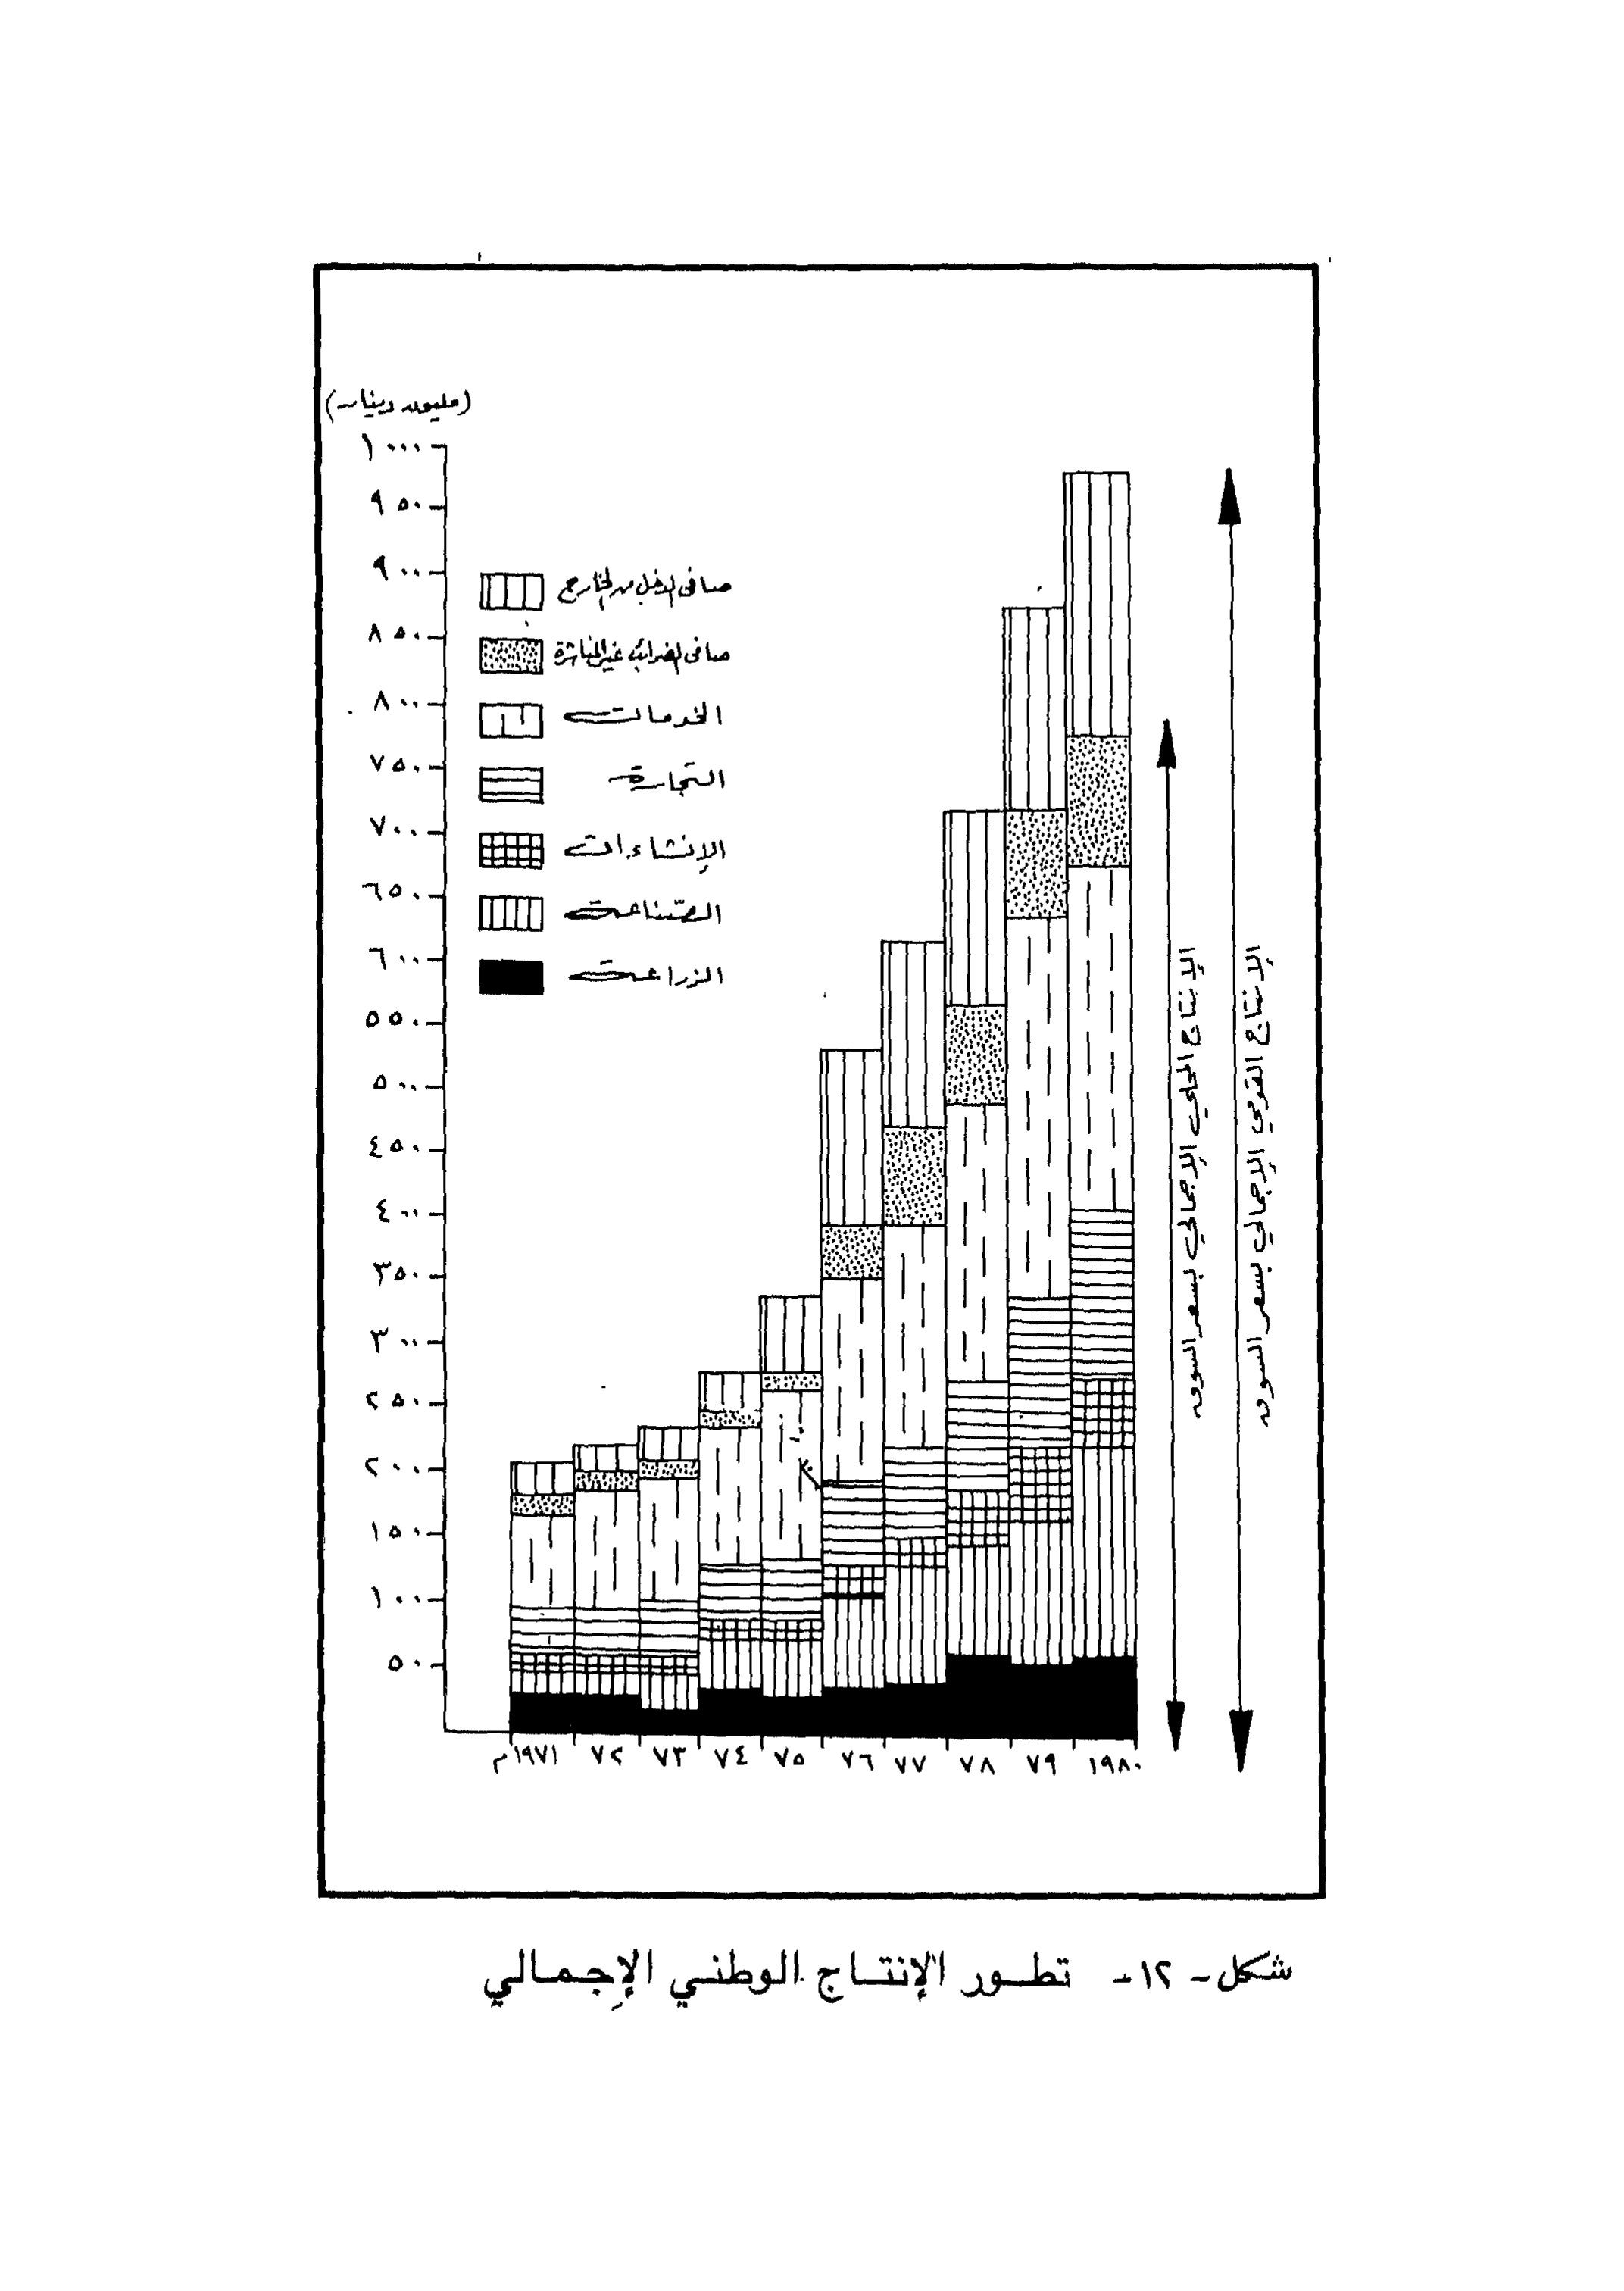 (مليون دينار)
١٠٠٠
٩٥٠
٩٠٠
٨٥٠
٨٠٠
٧٥٠
٧٠٠
٦٥٠
٦٠٠
٥٥٠
٥٠٠
٤٥٠
٤٠٠
٣٥٠
٣٠٠
٢٥٠
٢٠٠
١٥٠
١٠٠
٥٠
صافي الدخل من الخارج
صافي الضرائب غير المباشرة
الخدمات
التجارة
الإنشاءات
الصناعة
الزراعة
الإنتاج المحلي الإجمالي بسعر السوق
الإنتاج القومي الإجمالي بسعر السوق
١٩٧١م ٧٢ ٧٣ ٧٤ ٧٥ ٧٦ ٧٧ ٧٨ ٧٩ ١٩٨٠
شكل - ١٢- تطور الإنتاج الوطني الإجمالي